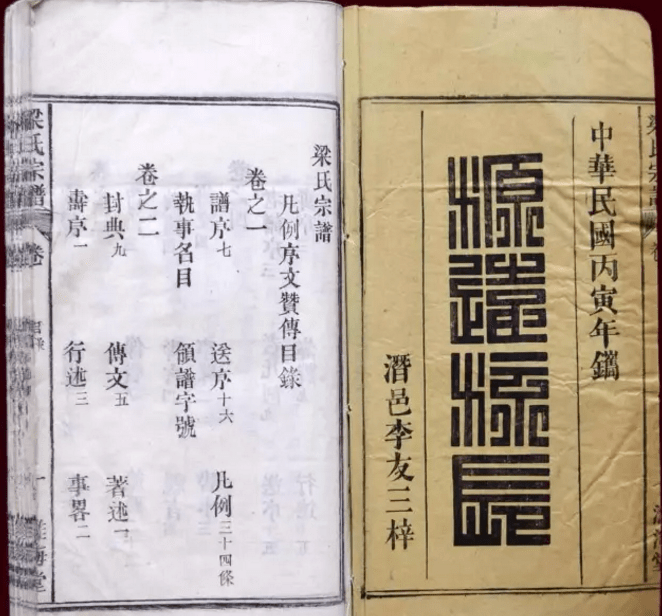 中華民國丙寅年鐫
源遠流長
潛邑李友三梓
梁氏宗譜
凡例序文贊傳目錄
卷之一
譜序七 送序十六 凡例三十四條
執事名目 領譜字號
卷之二
封典九 傳文五 著述一
壽序一 行述三 事畧二
梁氏宗譜 卷